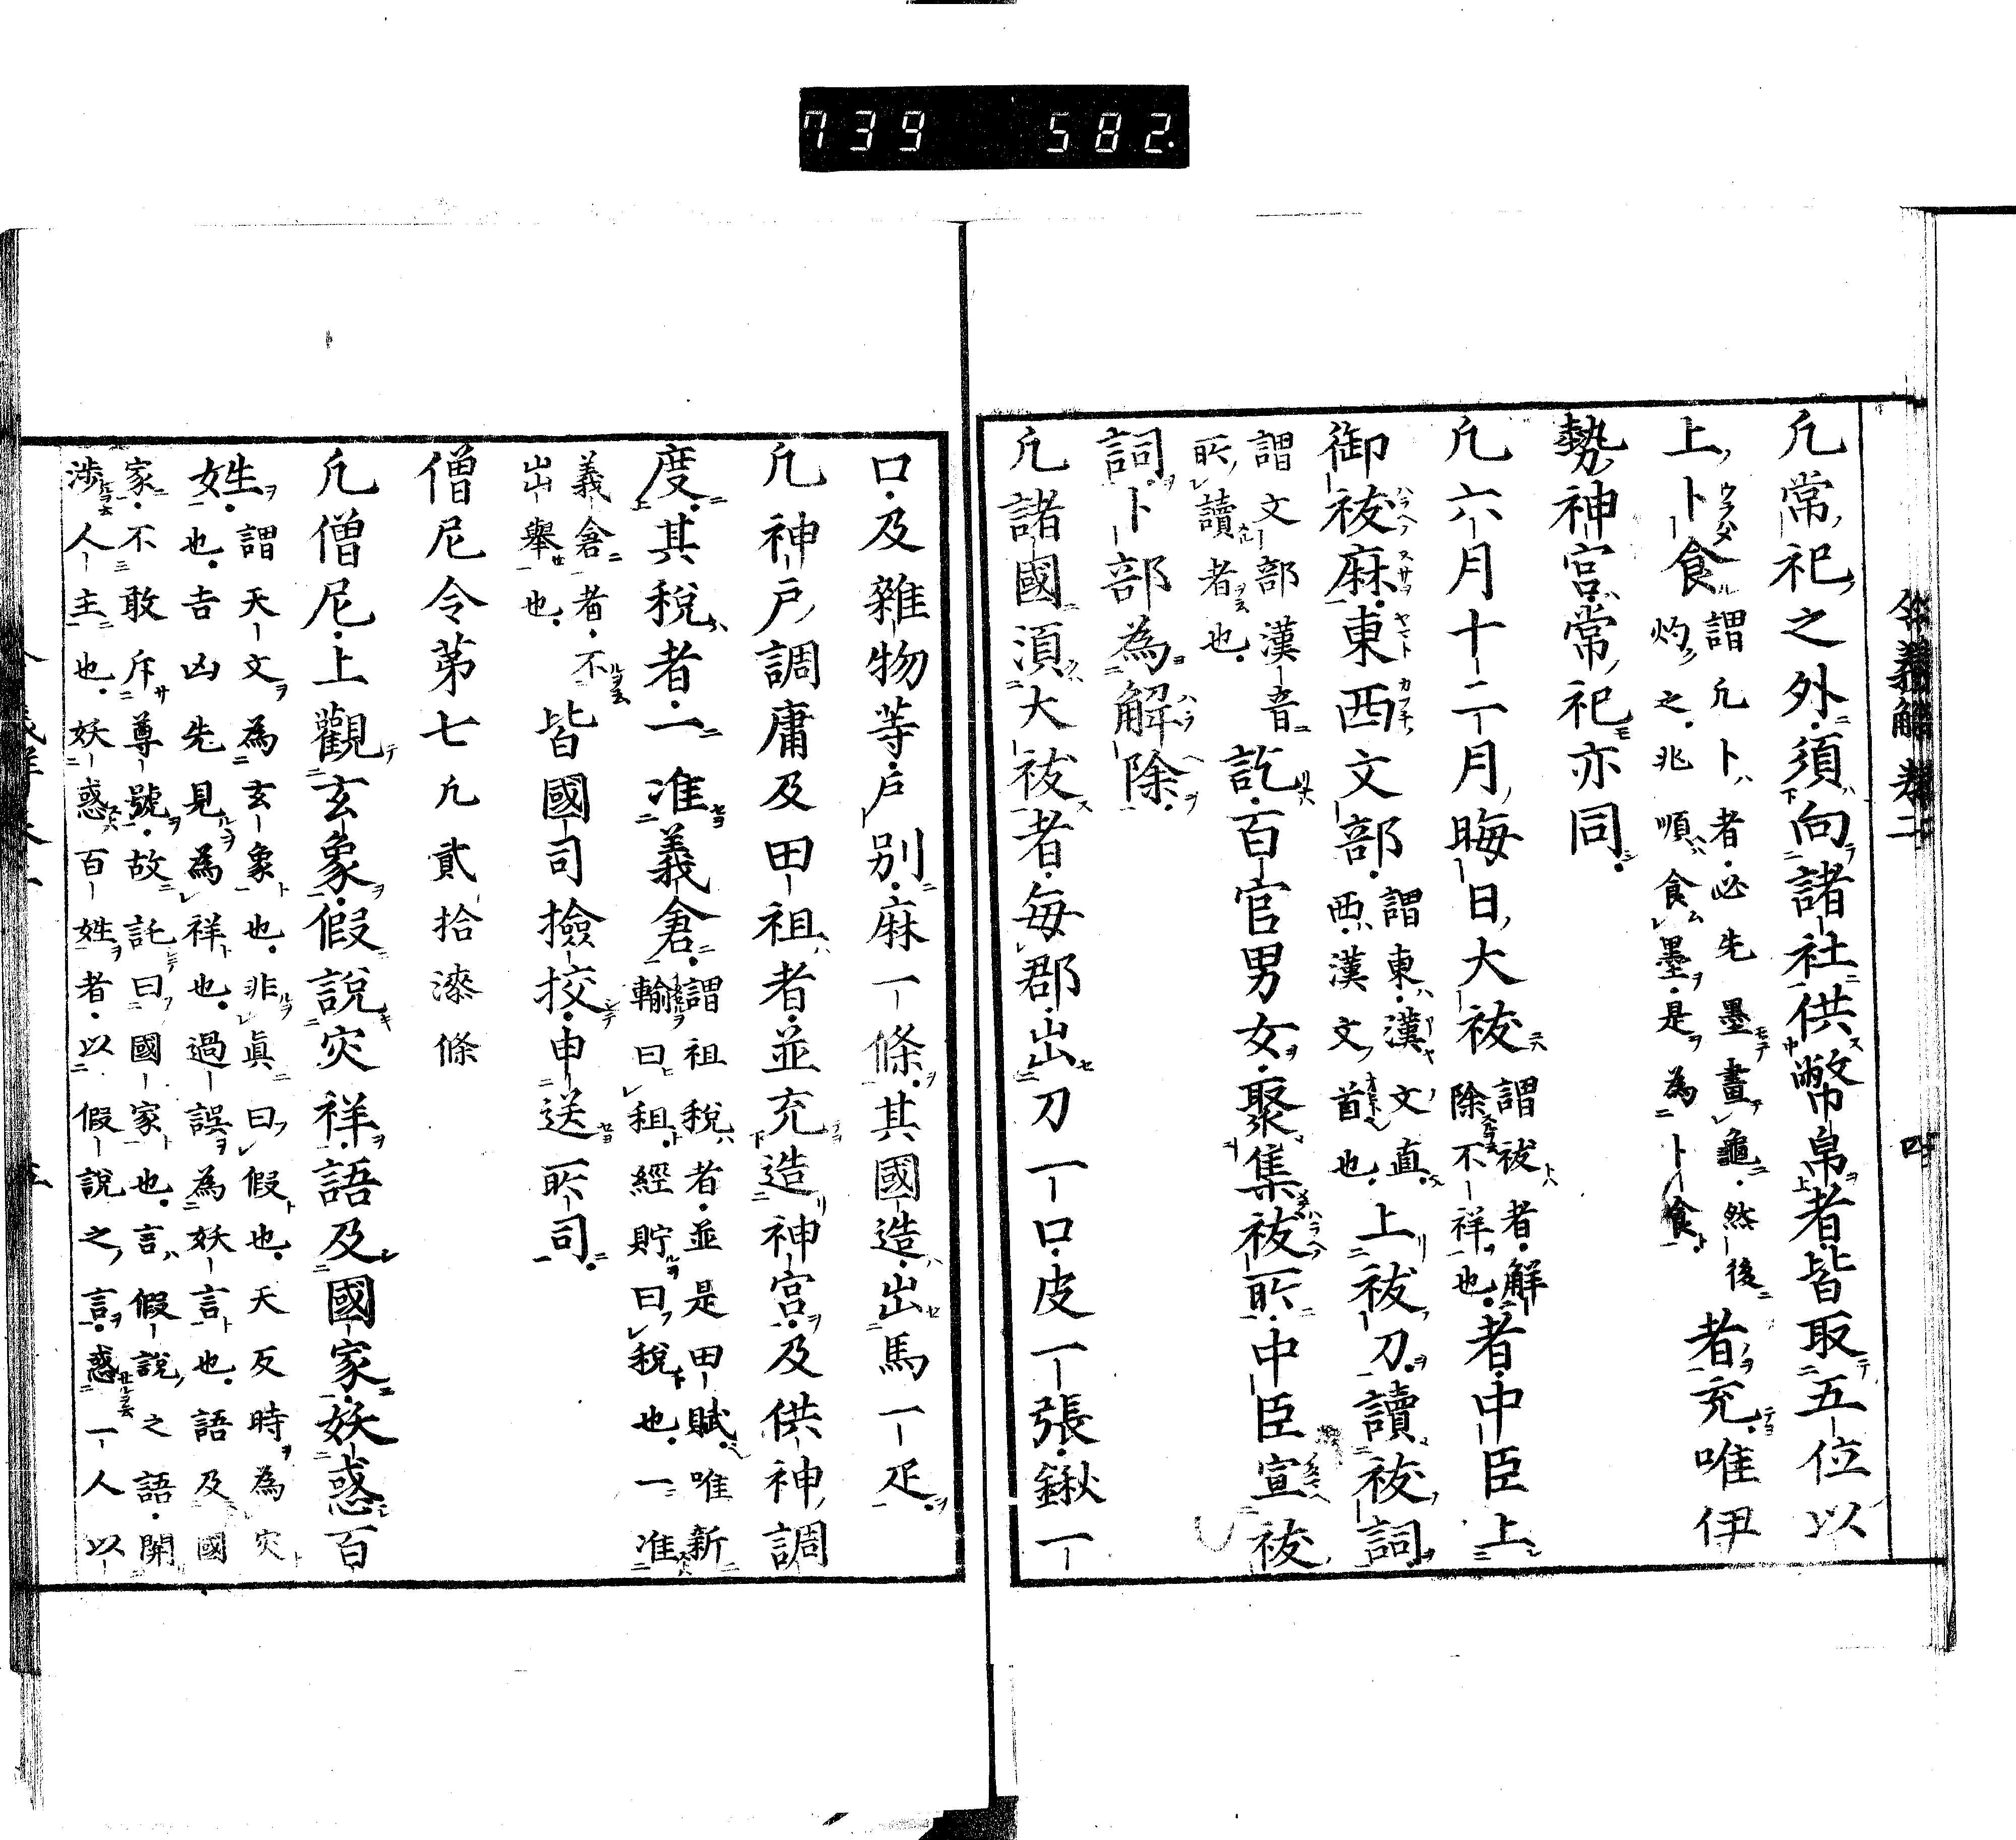 739 582
令義解 巻二 四
凢常祀之外須向諸社供幣帛者皆取五位以
上卜食謂凢卜者必先墨畫龜然後
灼之兆順食墨是為卜食者充唯伊
勢神宮常祀亦同
凢六月十二月晦日大祓謂祓者解
除不祥也者中臣上
御祓麻東西文部謂東漢文直
西漢文首也上祓刀讀祓詞
謂文部漢音
所讀者也訖百官男女聚集祓所中臣宣祓
詞卜部為解除
凢諸國須大祓者毎郡出刀一口皮一張鍬一
口及雜物等戸別麻一條其國造出馬一疋
凢神戸調庸及田租者並充造神宮及供神調
度其稅者一准義倉謂租稅者並是田賦唯新
輸曰租經貯曰稅也一准
義倉者不
出舉也皆國司撿挍申送所司
僧尼令第七凢貳拾漆條
凢僧尼上觀玄象假說灾祥語及國家妖惑百
姓謂天文為玄象也非真曰假也天反時為灾
也吉凶先見為祥也過誤為妖言也語及國
家不敢斥尊號故託曰國家也言假說之語開
渉人主也妖惑百姓者以假說之言惑一人以